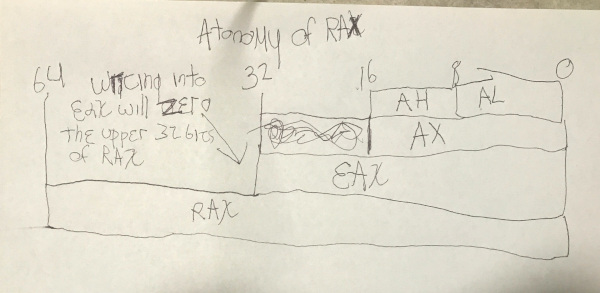 Atonomy of RAX
64 32 16 8 0
Writing into
EAX will ZERO
the upper 32 bits
of RAX
AH AL
AX
EAX
RAX